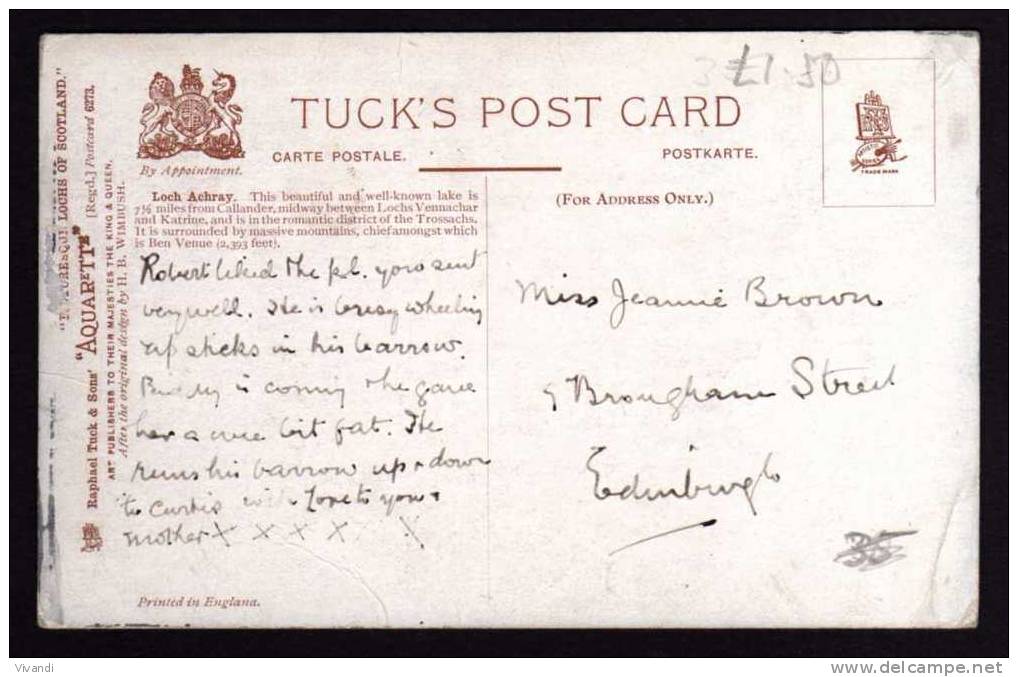 £1.50
TUCK'S POST CARD
CARTE POSTALE.
POSTKARTE.
By Appointment.
(FOR ADDRESS ONLY.)
ARTISTIC SERIES
TRADE MARK
LOCHS OF SCOTLAND."
Raphael Tuck & Sons' "AQUARETTE" [Regd.] Postcard 6273.
ART PUBLISHERS TO THEIR MAJESTIES THE KING & QUEEN.
After the original design by H. B. WIMBUSH.
Loch Achray. This beautiful and well-known lake is
7½ miles from Callander, midway between Lochs Vennachar
and Katrine, and is in the romantic district of the Trossachs.
It is surrounded by massive mountains, chief amongst which
is Ben Venue (2,393 feet).
Robert liked the p.c. you sent
very well. He is busy wheeling
up sticks in his barrow.
is coming the
her a bit fat. He
runs his barrow up & down
to Curtis with Love to you &
mother X X X X X
Miss Jeannie Brown
5 Brougham Street
Edinburgh
35
Printed in England.
Vivandi
www.delcampe.net